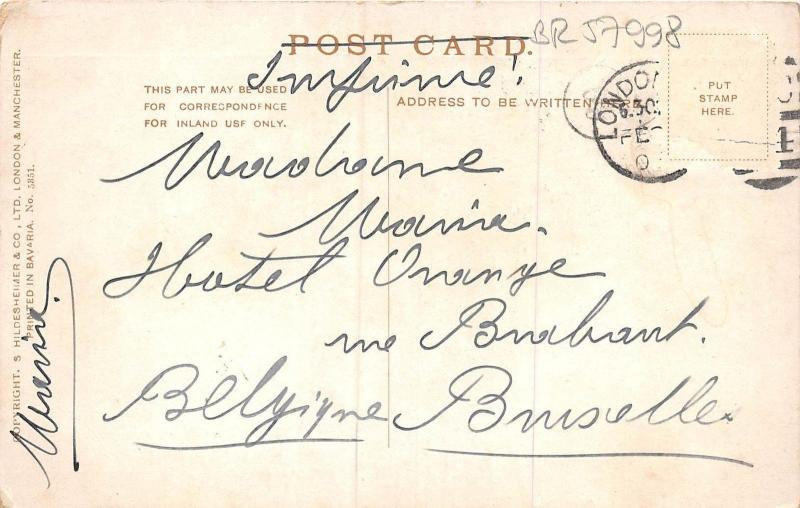 POST CARD.
BR 57998
Imprimé!
THIS PART MAY BE USED
FOR CORRESPONDENCE
FOR INLAND USE ONLY.
ADDRESS TO BE WRITTEN HERE.
PUT
STAMP
HERE.
LONDON
6.30
FE
0
Madame
Maria.
Hotel Orange
rue Brabant.
Belgique Bruxelles
Maria.
COPYRIGHT. S HILDESHEIMER & CO, LTD. LONDON & MANCHESTER.
PRINTED IN BAVARIA. No. 5351.